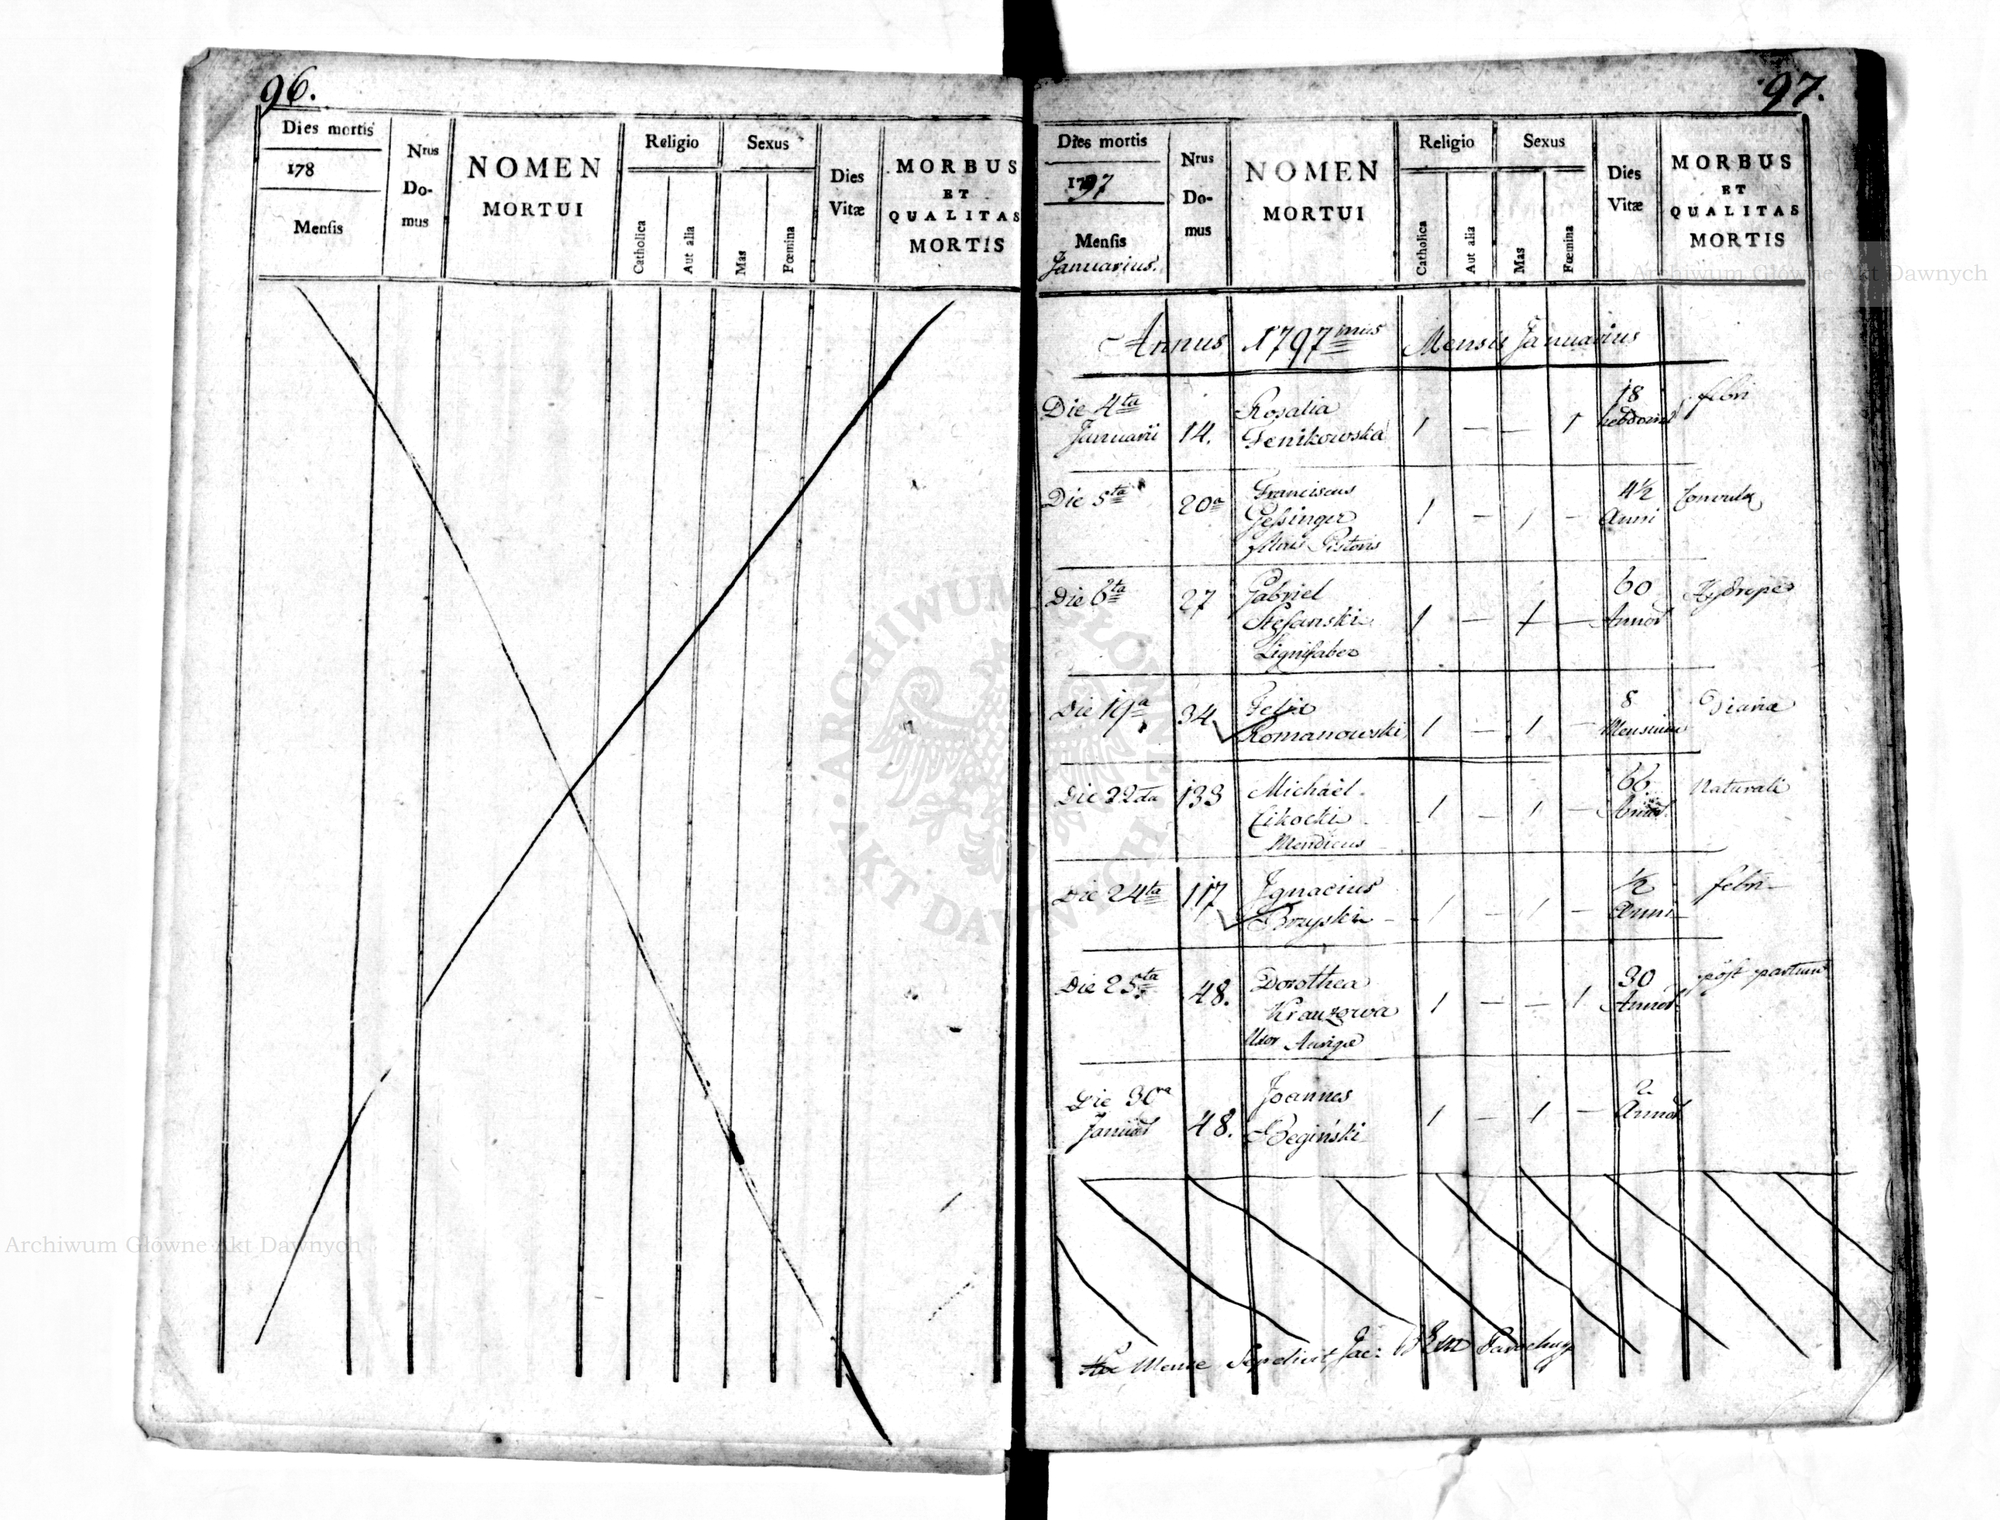 96.
Dies mortis
178
Mensis
Nrus
Do-
mus
NOMEN
MORTUI
Religio
Catholica
Aut alia
Sexus
Mas
Fœmina
Dies
Vitæ
MORBUS
ET
QUALITAS
MORTIS
97.
Dies mortis
1797
Mensis
Januarius.
Nrus
Do-
mus
NOMEN
MORTUI
Religio
Catholica
Aut alia
Sexus
Mas
Fœmina
Dies
Vitæ
MORBUS
ET
QUALITAS
MORTIS
Annus 1797mus Mensis Januarius
Die 4ta
Januarii
14.
Rosalia
Fenikowska
1 — — 1
18
febri
Die 5ta
20a
Franciscus
Gessinger
filius Pistoris
1 — 1 —
4½
Anni
Die 6ta
27
Gabriel
Stefanski
Lignifaber
1 — 1 —
60
Annor
Hydrope
Die 19a
34
Felix
Romanowski
1 — 1 —
8
Mensium
Diaria
Die 22da
133
Michaël
Cikocki
Mendicus
1 — 1 —
66
Annor.
Naturali
Die 24ta
117
Ignacius
Brzyski
1 — 1 —
½
Anni
febri
Die 25ta
48.
Dorothea
Krauzowa
Uxor Aurigæ
1 — — 1
30
Annor
post partum
Die 30ma
Januar
48.
Joannes
Begiński
1 — 1 —
2
Annor
Hoc Mense Sepelivit Jac: Parochus
Archiwum Główne Akt Dawnych
Archiwum Główne Akt Dawnych
ARCHIWUM GŁÓWNE · AKT DAWNYCH ·